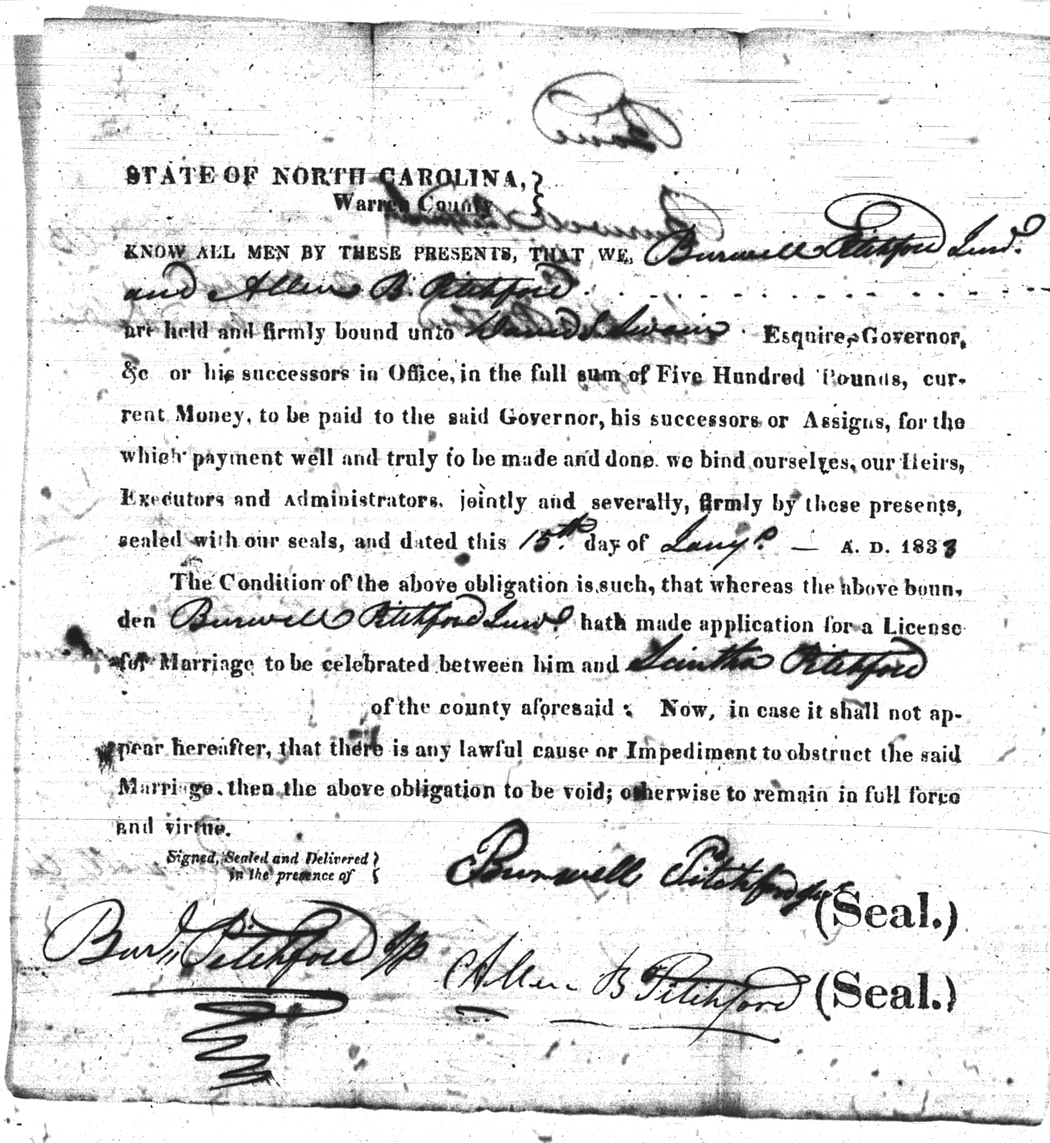 STATE OF NORTH CAROLINA,
Warren County
KNOW ALL MEN BY THESE PRESENTS, THAT WE, Burwell Pitchford Junr.
and Allen B. Pitchford
are held and firmly bound unto David L Swain Esquire, Governor,
&c or his successors in Office, in the full sum of Five Hundred Pounds, cur-
rent Money, to be paid to the said Governor, his successors or Assigns, for the
which payment well and truly to be made and done. we bind ourselves, our Heirs,
Executors and Administrators, jointly and severally, firmly by these presents,
sealed with our seals, and dated this 15th day of Jany. — A. D. 1833
The Condition of the above obligation is such, that whereas the above boun-
den Burwell Pitchford Junr. hath made application for a License
for Marriage to be celebrated between him and Scintha Pitchford
of the county aforesaid: Now, in case it shall not ap-
pear hereafter, that there is any lawful cause or Impediment to obstruct the said
Marriage, then the above obligation to be void; otherwise to remain in full force
and virtue.
Signed, Sealed and Delivered
in the presence of
Burwell Pitchford Jr (Seal.)
Burl Pitchford JP
Allen B Pitchford (Seal.)